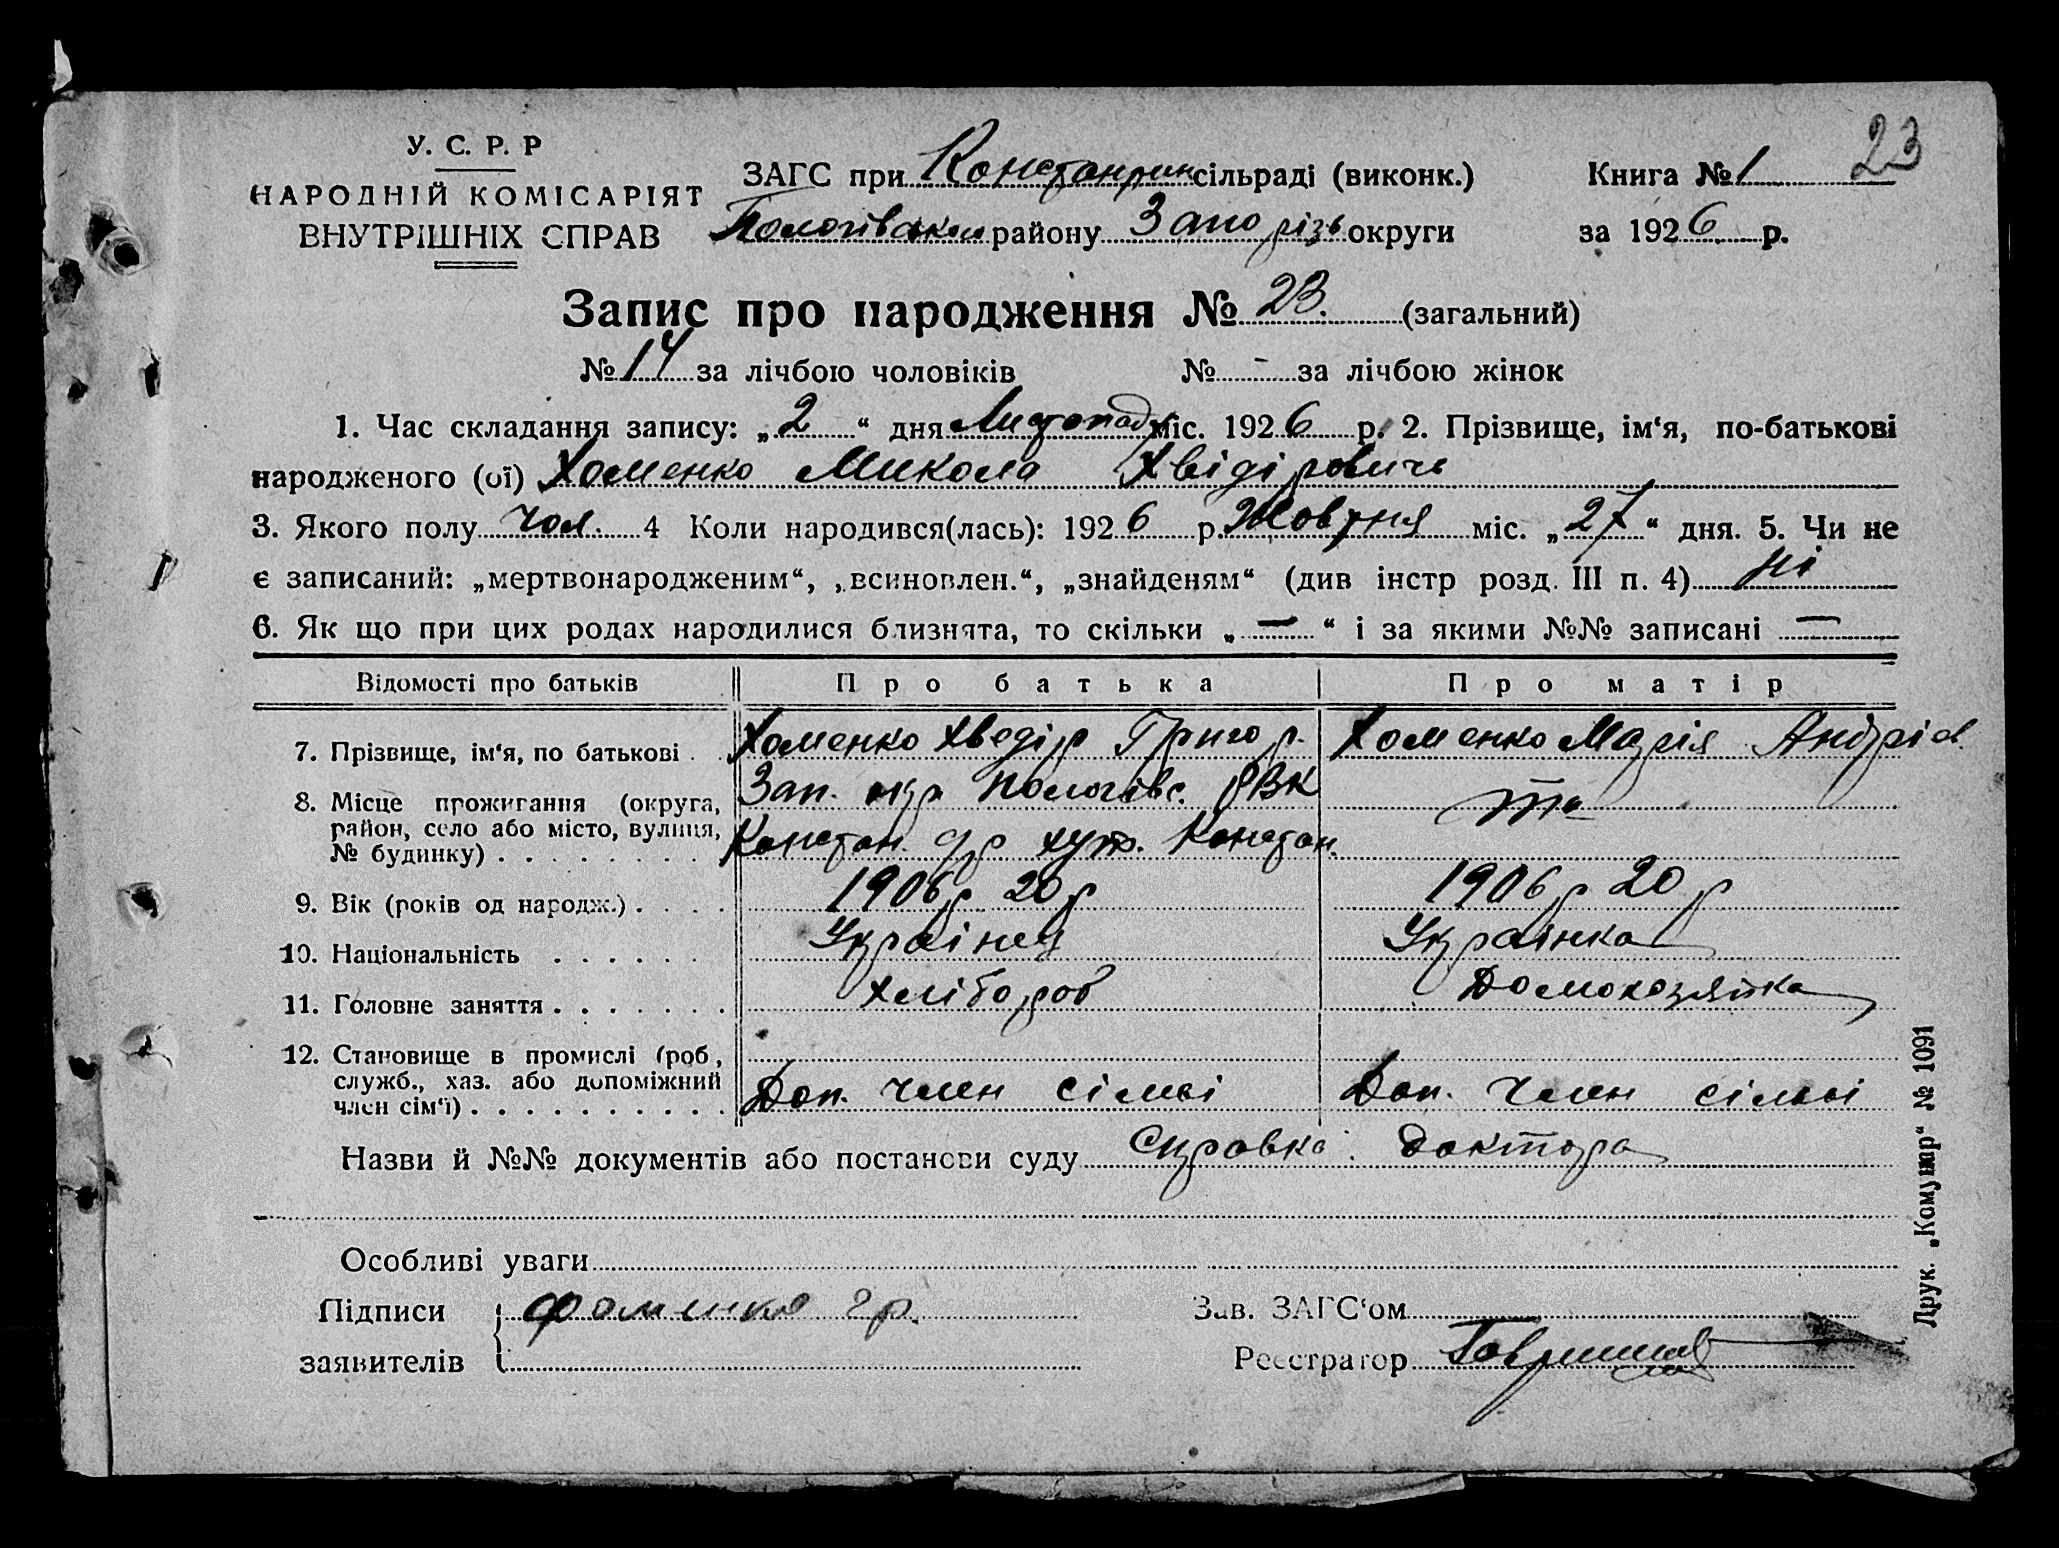 23
У. С. Р. Р
НАРОДНІЙ КОМІСАРІЯТ
ВНУТРІШНІХ СПРАВ
ЗАГС при Константин сільраді (виконк.)
Книга № 1
Пологівськ району Запорізь округи
за 1926 р.
Запис про народження № 23. (загальний)
№ 14 за лічбою чоловіків № - за лічбою жінок
1. Час складання запису: „ 2 “ дня Листопад міс. 1926 р. 2. Прізвище, ім‘я, по-батькові
народженого (ої) Хоменко Микола Хвідірович
3. Якого полу чол. 4 Коли народився(лась): 1926 р. Жовтня міс. „ 27 “ дня. 5. Чи не
є записаний: „мертвонародженим“, „всиновлен.“, „знайденям“ (див інстр розд. III п. 4) ні
6. Як що при цих родах народилися близнята, то скільки „ — “ і за якими №№ записані —
Відомості про батьків Про батька Про матір
7. Прізвище, ім‘я, по батькові Хоменко Хведір Григор. Хоменко Марія Андрів.
8. Місце проживання (округа,
район, село або місто, вулиця,
№ будинку)
Зап. окр Пологівс. РВК
Констан. с/р хут. Констан.
9. Вік (років од народж.) 1906 р 20 р 1906 р 20 р
10. Національність Українец Українка
11. Головне заняття Хлібороб Домохозяйка
12. Становище в промислі (роб,
служб., хаз. або допоміжний
член сім‘ї)
Доп. член сімьі Доп. член сімьі
Назви й №№ документів або постанови суду Справка доктора
Особливі уваги
Підписи
заявителів
Фоменко гр.
Зав. ЗАГС‘ом
Реєстратор
Друк. „Комунар“ № 1091